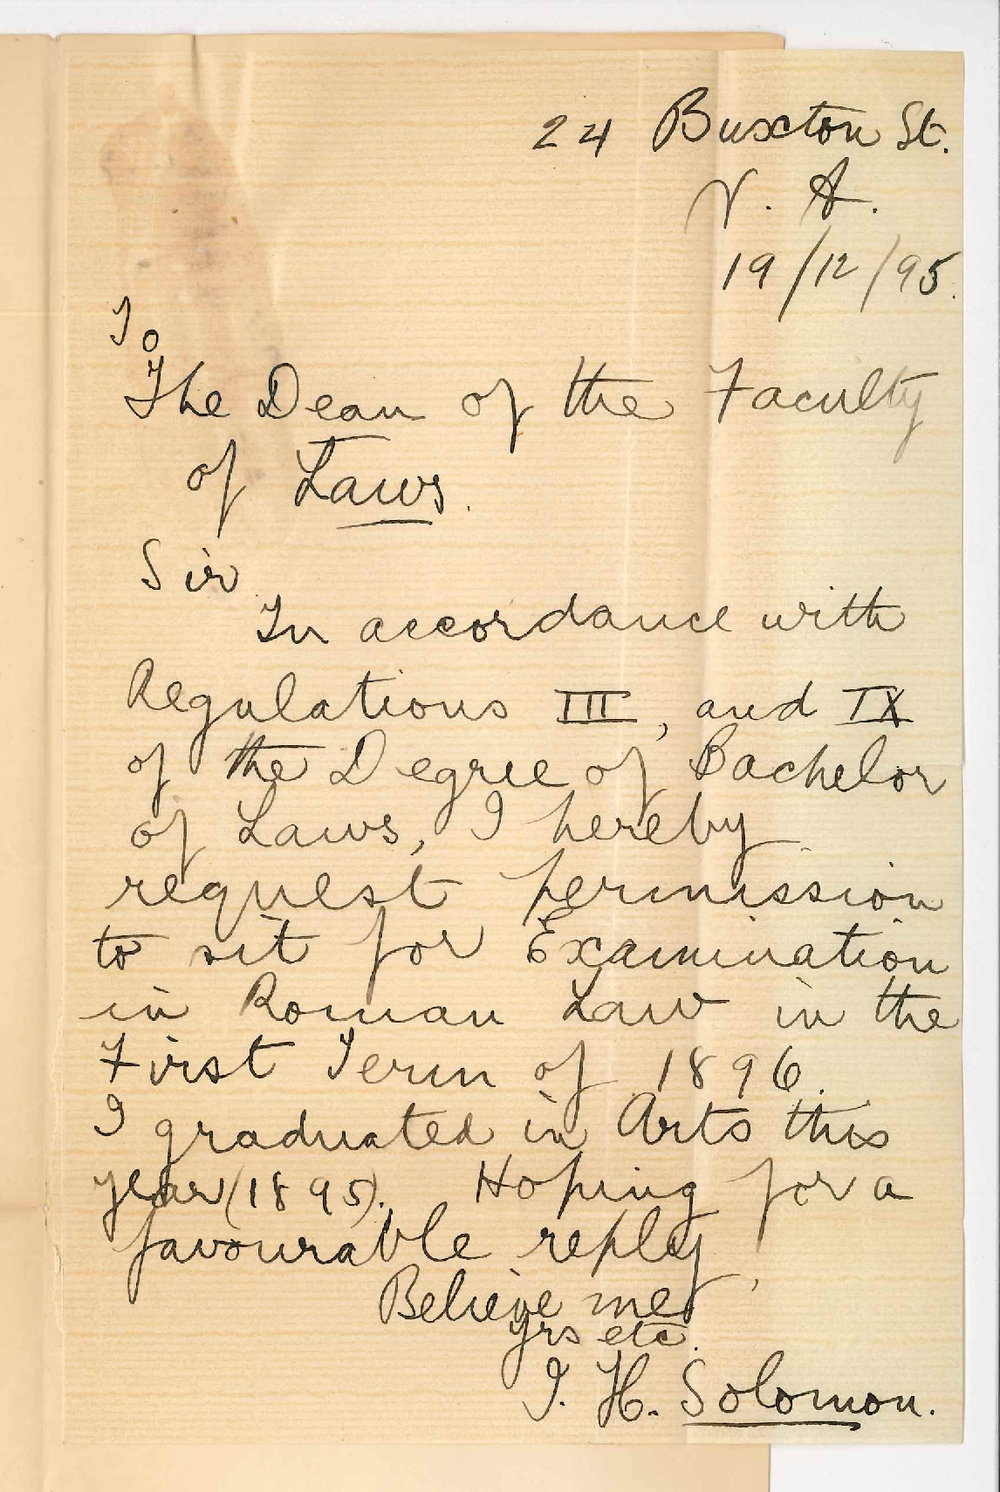 24 Buxton St.
N. A.
19/12/95.
To
The Dean of the Faculty
of Laws.
Sir
In accordance with
Regulations III, and IX
of the Degree of Bachelor
of Laws, I hereby
request permission
to sit for Examination
in Roman Law in the
First Term of 1896.
I graduated in Arts this
year (1895). Hoping for a
favourable reply,
Believe me
yrs etc.
I. H. Solomon.